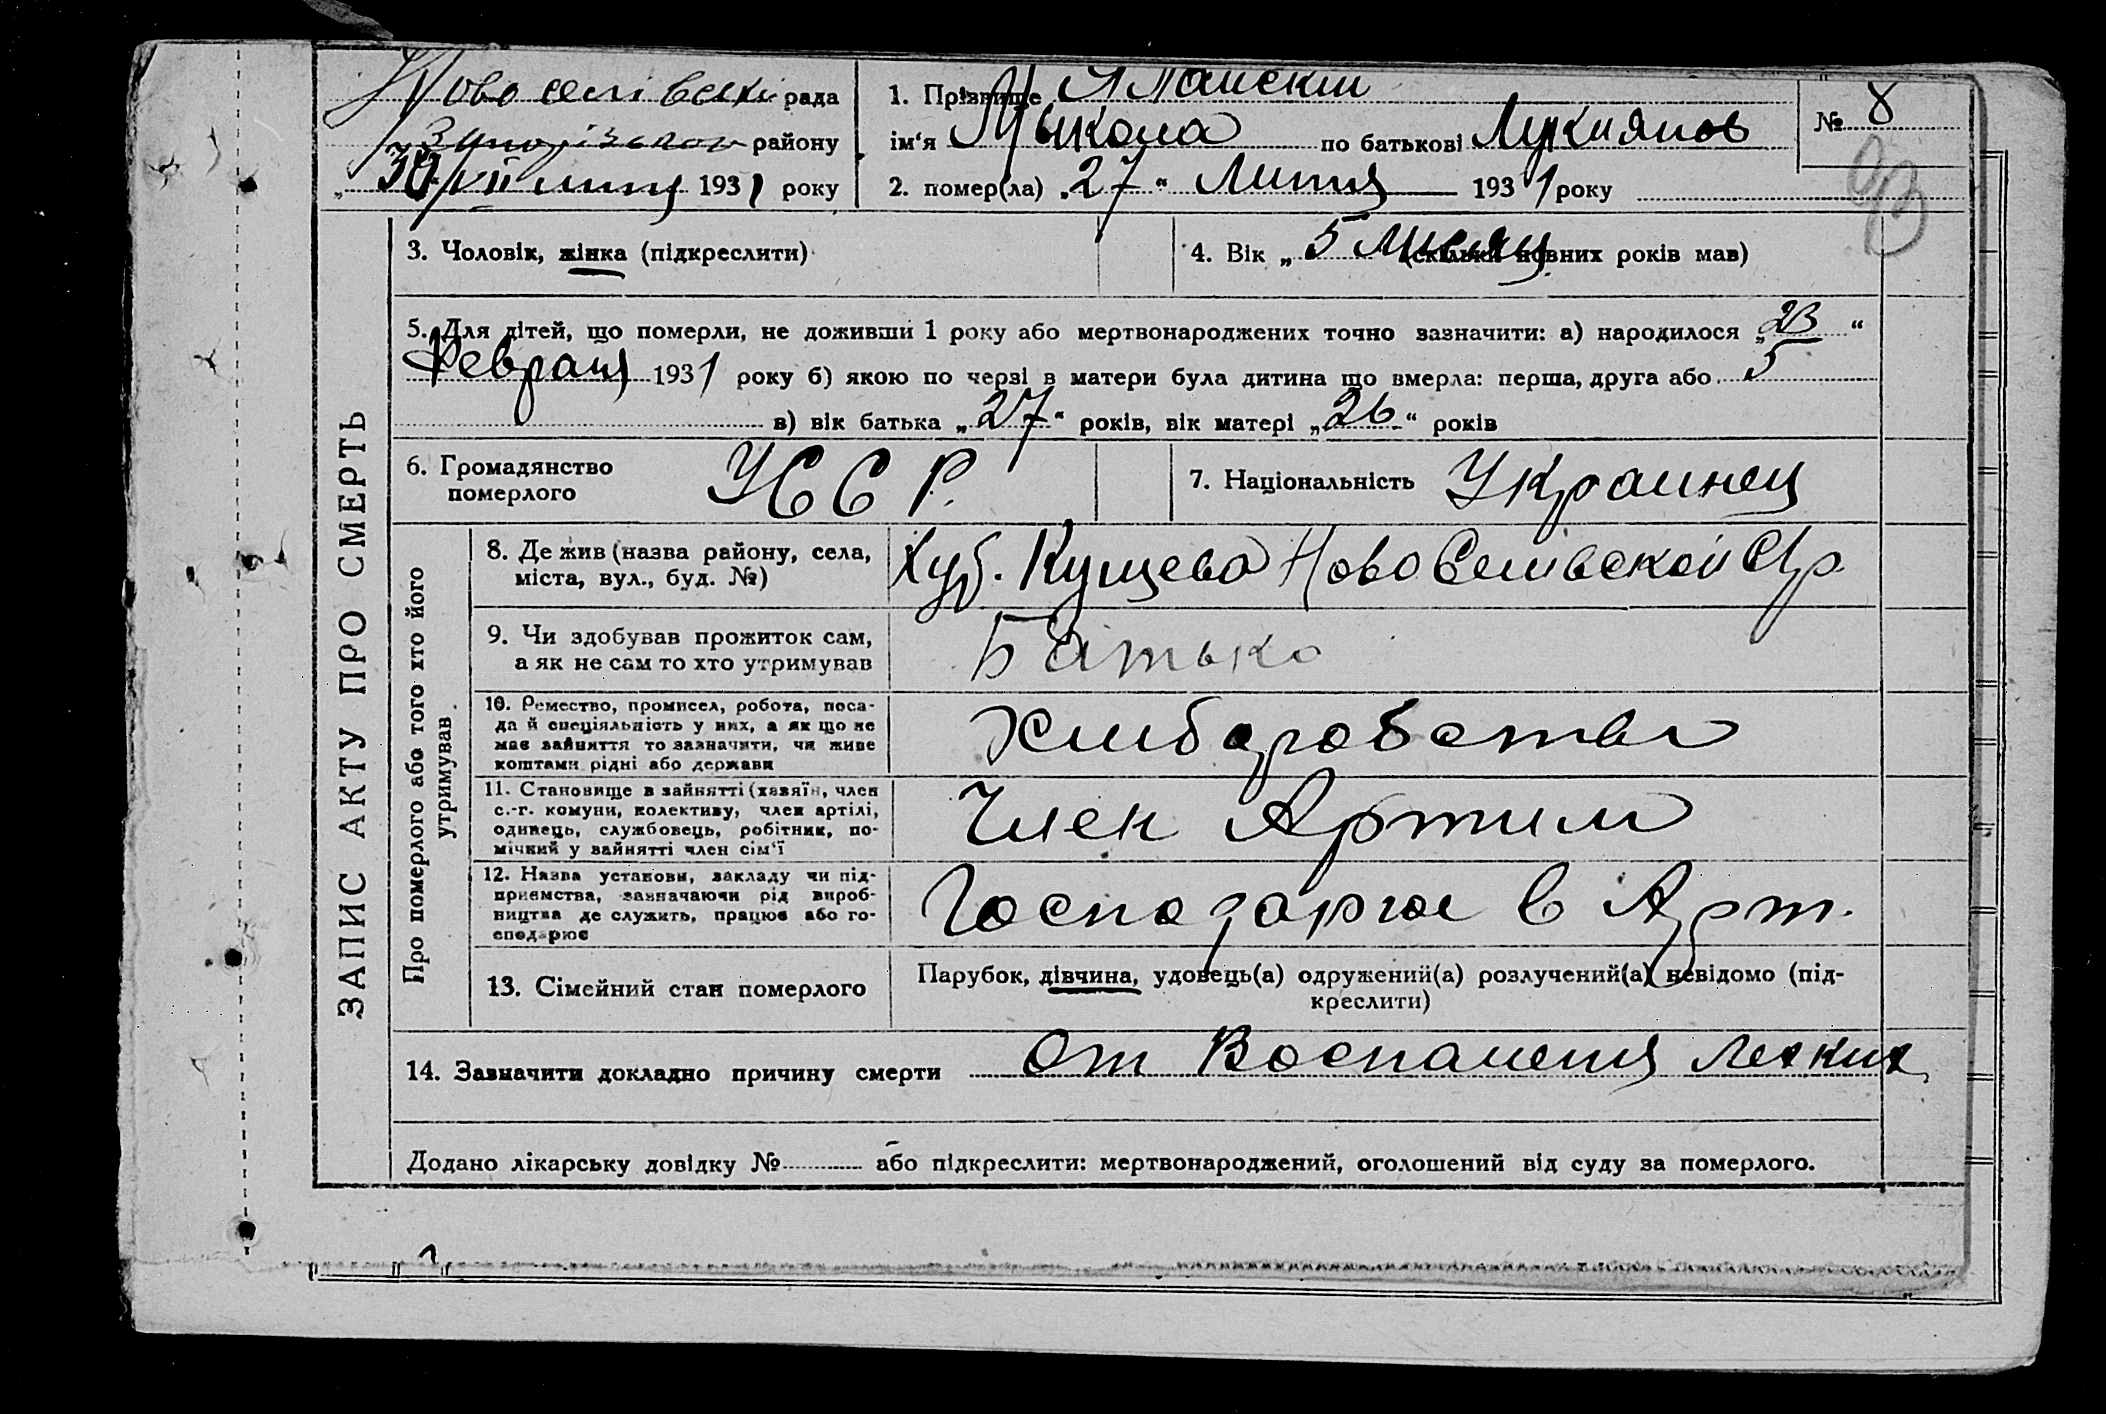 Новоселівська рада
району
30/VII липця 1931 року
1. Прізвище
ім‘я Мыкола по батькові Лукиянов
2. помер(ла) „27“ Липця 1931 року
№ 8
93
ЗАПИС АКТУ ПРО СМЕРТЬ
3. Чоловік, жінка (підкреслити)
4. Вік „5 Мисяц (скільки повних років мав)
5. Для дітей, що померли, не доживши 1 року або мертвонароджених точно зазначити: а) народилося „23“
Февраля 1931 року б) якою по черзі в матери була дитина що вмерла: перша, друга або 5
в) вік батька „27“ років, вік матері „26“ років
6. Громадянство
померлого
УССР.
7. Національність Украинец
Про померлого або того хто його
утримував
8. Де жив (назва району, села,
міста, вул., буд. №)
Хут. Кущево Новоселівской С/р.
9. Чи здобував прожиток сам,
а як не сам то хто утримував
Батько
10. Ремество, промисел, робота, поса-
да й спеціяльність у них, а як що не
має зайняття то зазначити, чи живе
коштами рідні або держави
Хлиборобство
11. Становище в зайнятті (хазяїн, член
с.-г. комуни, колективу, член артілі,
одинець, службовець, робітник, по-
мічний у зайнятті член сім‘ї
Член Артили
12. Назва установи, закладу чи під-
приємства, зазначаючи рід вироб-
ництва де служить, працює або го-
сподарює
Господарює в Арт.
13. Сімейний стан померлого
Парубок, дівчина, удовець(а) одружений(а) розлучений(а) невідомо (під-
креслити)
14. Зазначити докладно причину смерти От Воспаления Легких
Додано лікарську довідку № або підкреслити: мертвонароджений, оголошений від суду за померлого.